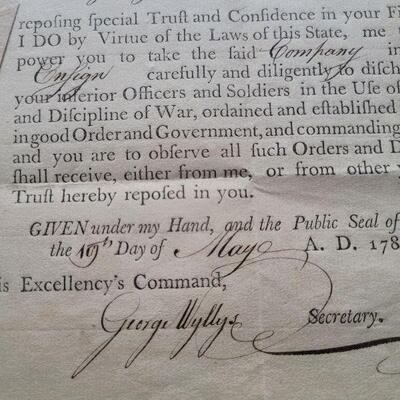 reposing special Trust and Confidence in your Fi
I DO by Virtue of the Laws of this State, me
power you to take the said Company in
Ensign carefully and diligently to disch
your inferior Officers and Soldiers in the Use of
and Discipline of War, ordained and established
in good Order and Government, and commanding
and you are to observe all such Orders and D
shall receive, either from me, or from other y
Trust hereby reposed in you.
GIVEN under my Hand, and the Public Seal of
the Day of May A. D. 178
is Excellency's Command,
George Wyllys Secretary.